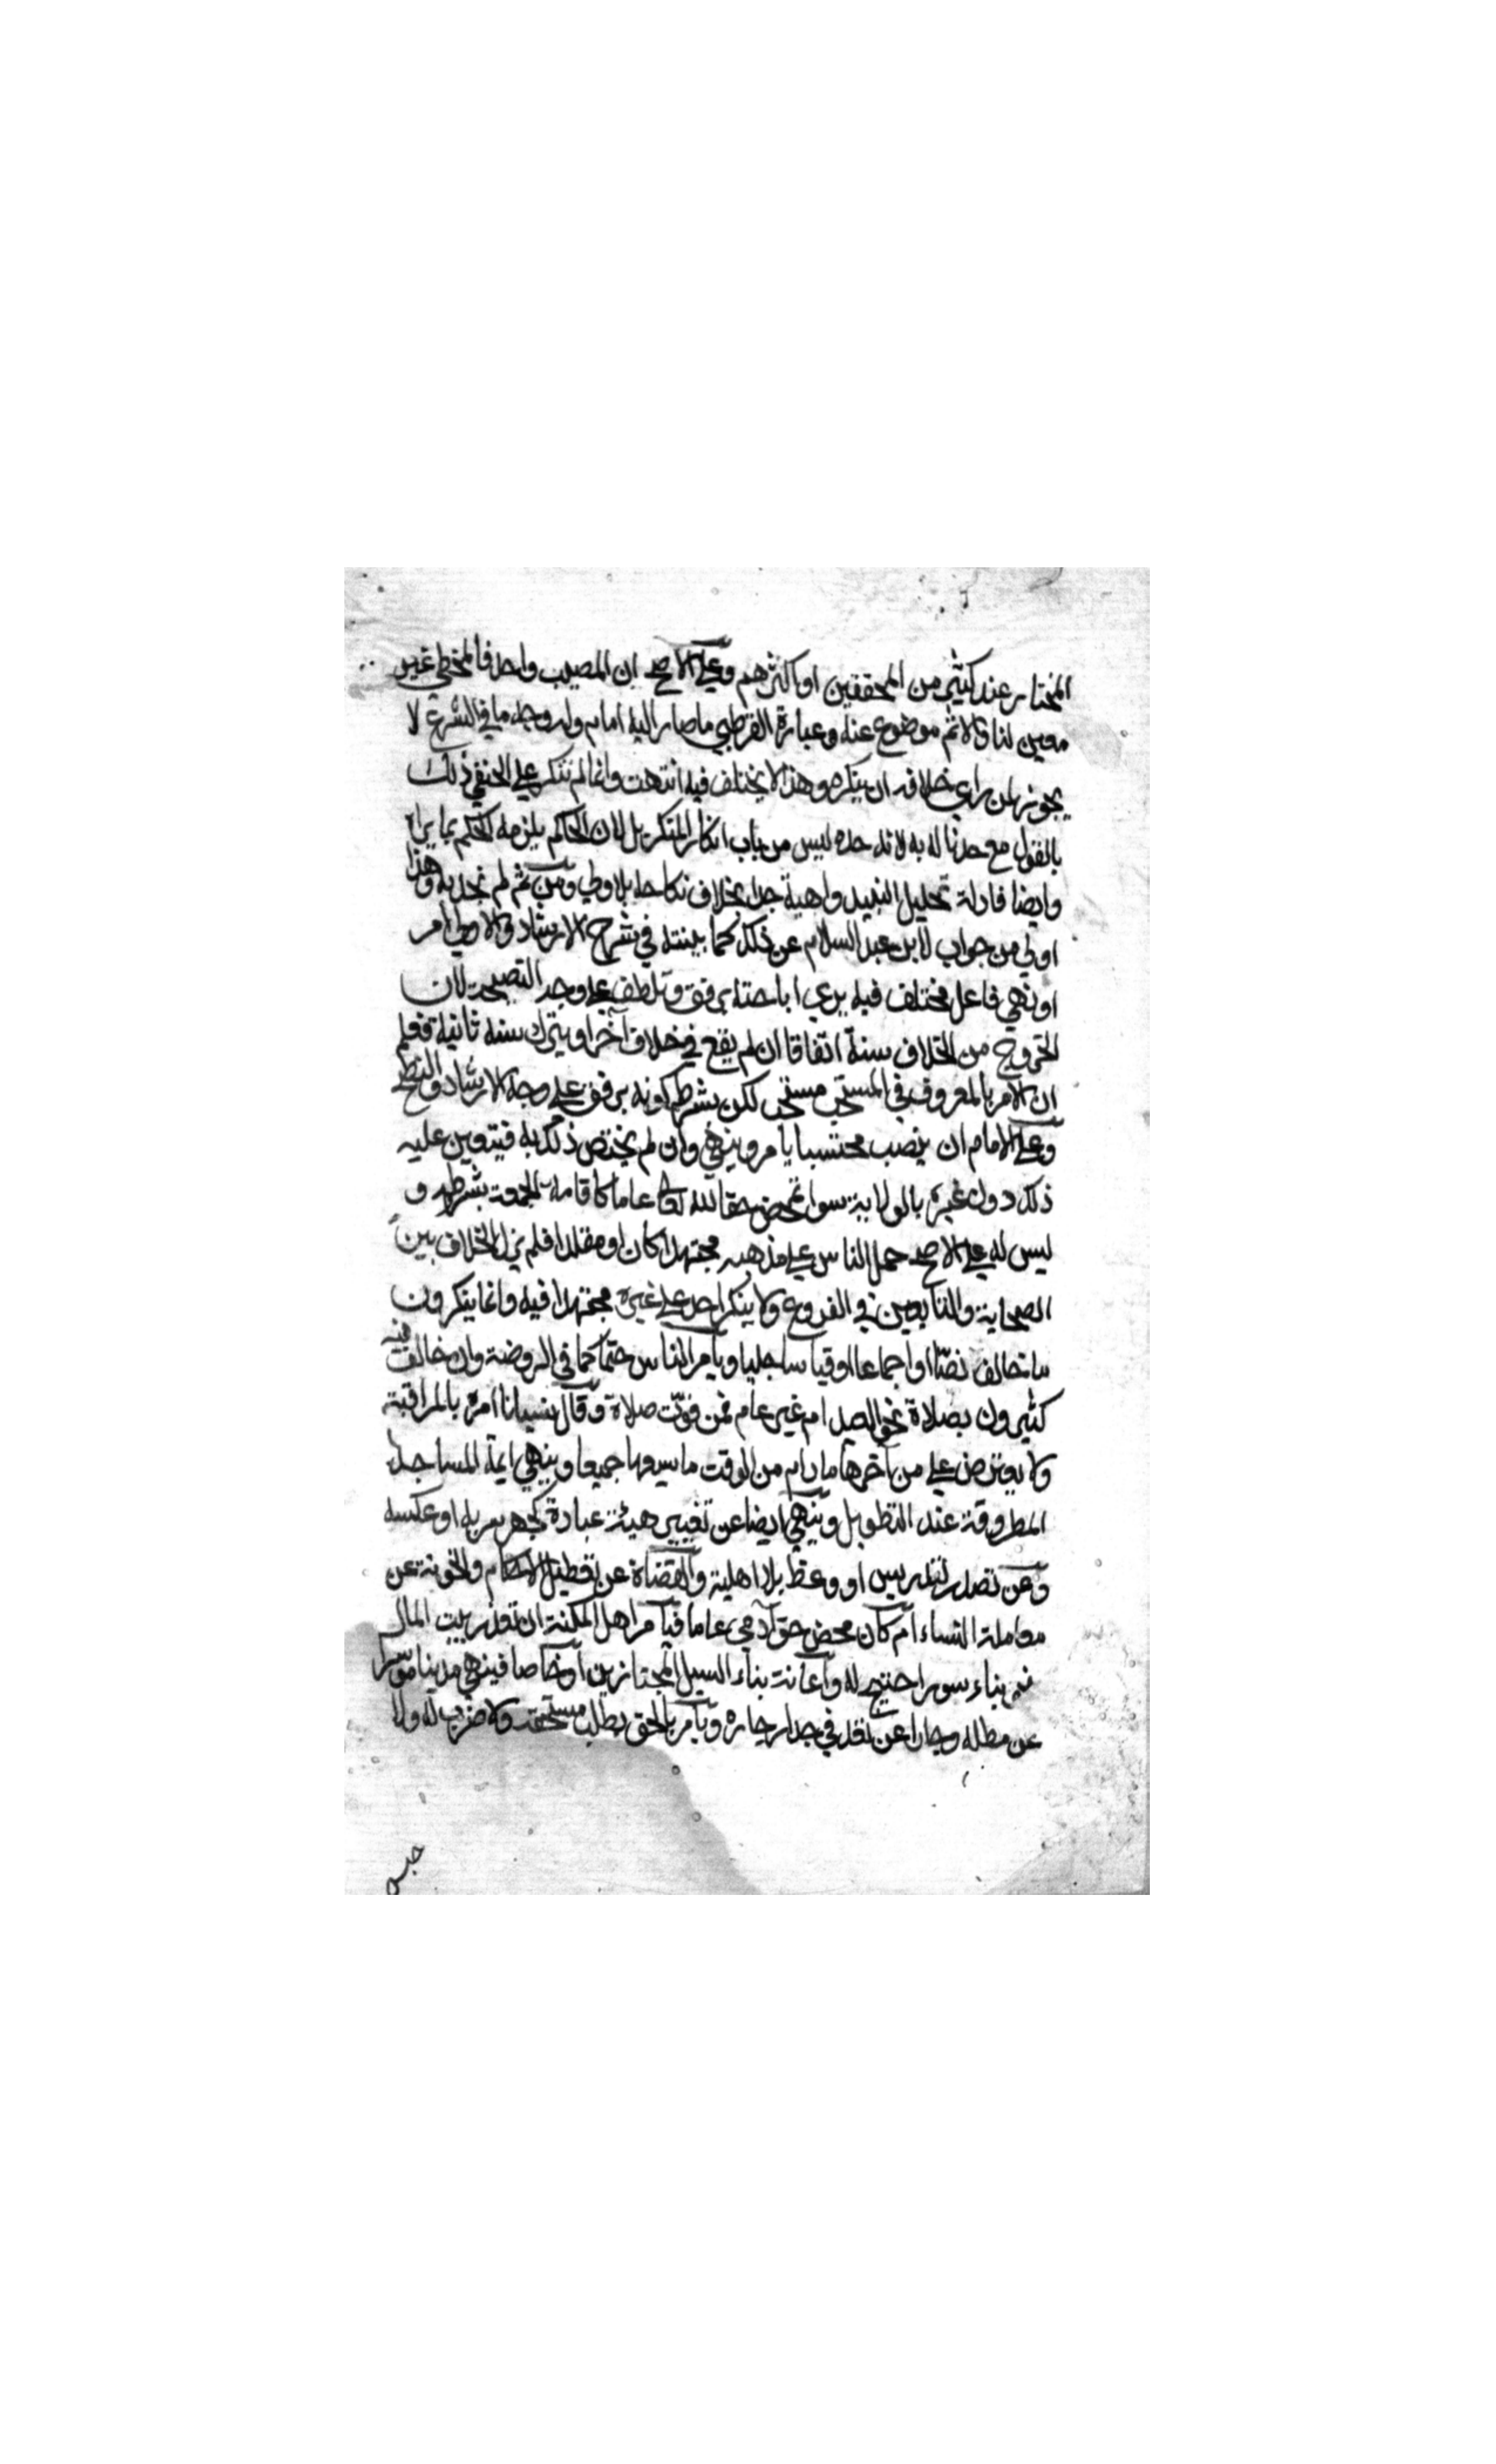 المختار عند كثير من المحققين او اكثرهم وعلى الاصح ان المصيب واحد فالمخطي غير
معين لنا والاثم موضوع عنه وعبارة القرطبي ما صار اليه امام وله وجه ما في الشرع لا
يجوز لمن راي خلافه ان ينكره وهذا لا يختلف فيه انتهت وانما لم ننكر على الحنفي ذلك
بالقول مع حدنا له به لانه حده ليس من باب انكار المنكر بل لان الحاكم يلزمه الحكم بما يراه
وايضا فادلة تحليل النبيذ واهية جدا بخلاف نكاحه بلا ولي ومن ثم لم نحد به وهذا
اولي من جواب لابن عبد السلام عن ذلك كما بينته في شرح الارشاد والاولي امر
او نهي فاعل مختلف فيه يري اباحته برفق وتلطف على وجه النصيحة لان
الخروج من الخلاف سنة اتفاقا ان لم يقع في خلاف آخر او يترك سنة ثانية فعلم
ان الامر بالمعروف في المستحب مستحب لكن بشرط كونه برفق على وجه الارشاد والنصح
وعلى الامام ان ينصب محتسبا يامر وينهي وان لم يختص ذلك به فيتعين عليه
ذلك دون غيره بالولاية سوا تمحض حقا لله تعالى عاما كاقامة الجمعة بشرطه و
ليس له على الاصح حمل الناس على مذهبه مجتهدا كان او مقلدا فلم يزل الخلاف بين
الصحابة والتابعين في الفروع ولا ينكر احد على غيره مجتهدا فيه وانما ينكرون
ما خالف نصّا او اجماعا او قياسا جليا ويامر الناس حتما كما في الروضة وان خالف فيه
كثيرون بصلاة نحو العيد ام غير عام فمن فوّت صلاة وقال نسيانا امره بالمراقبة
ولا يعترض على من آخرها ما دام من الوقت ما يسعها جميعا وينهي ايمة المساجد
المطروقة عند التطويل وينهي ايضا عن تغيير هيئة عبادة كجهر بسرية او عكسه
وعن تصدر لتدريس او وعظ بلا اهلية والقضاة عن تعطيل الاحكام والخونة عن
معاملة النساء ام كان محض حق آدمي عاما فيامر اهل المكنة ان تعذر بيت المال
ببناء سور احتيج له واعانة بناء السبيل المجتازين او خاصا فينهي مدينا موسرا
عن مطله وجارا عن تعد في جدار جاره ويامر بالحق بطلب مستحقه ولا ضرب له ولا